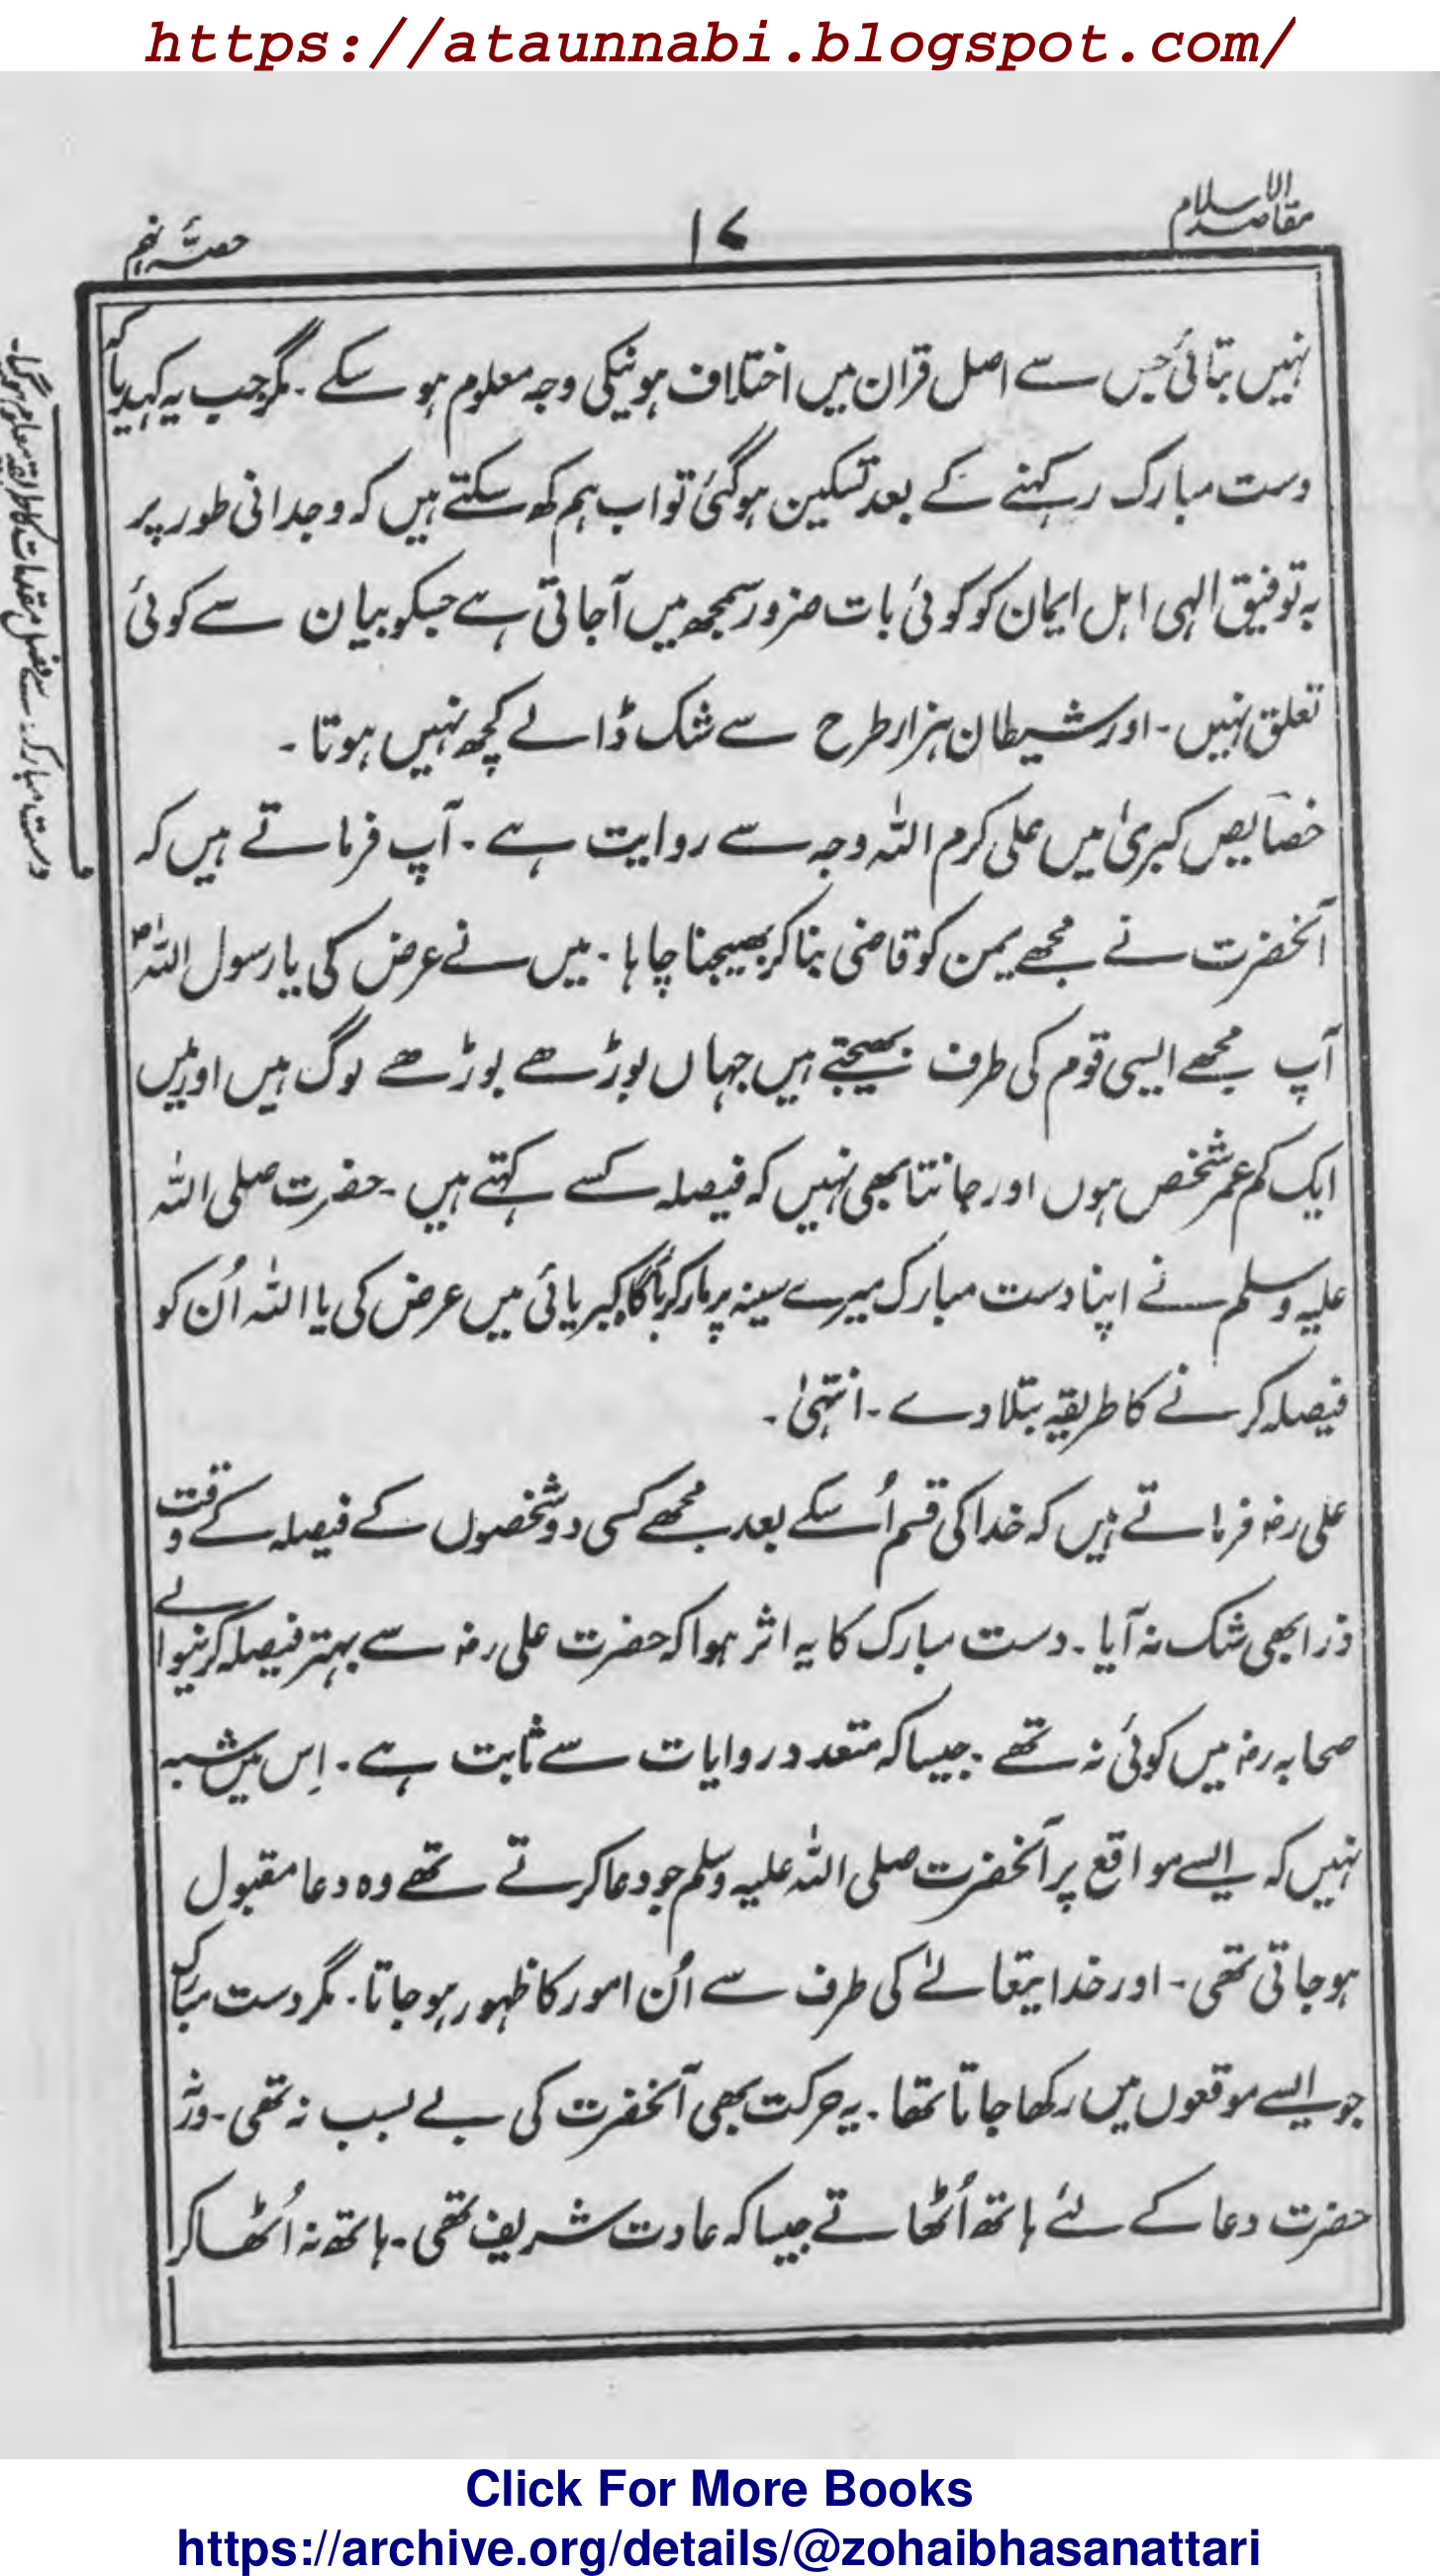 https://ataunnabi.blogspot.com/
مقاصد الاسلام
۱۷
حصۂ نہم
نہیں بتائی جس سے اصل قرآن میں اختلاف ہونیکی وجہ معلوم ہو سکے ۔ مگر جب یہ کہدیا کہ
دست مبارک رکہنے کے بعد تسکین ہوگئی تو اب ہم کھ سکتے ہیں کہ وجدانی طور پر
بہ توفیق الہی اہل ایمان کو کوئی بات ضرور سمجھ میں آجاتی ہے جسکو بیان سے کوئی
تعلق نہیں ۔ اور شیطان ہزار طرح سے شک ڈالے کچھ نہیں ہوتا ۔
خصایص کبریٰ میں علی کرم اللہ وجہ سے روایت ہے ۔ آپ فرماتے ہیں کہ
آنحضرت نے مجھے یمن کو قاضی بنا کر بھیجنا چاہا ۔ میں نے عرض کی یا رسول اللہؐ
آپ مجھے ایسی قوم کی طرف بھیجتے ہیں جہاں بوڑھے بوڑھے لوگ ہیں اور میں
ایک کم عمر شخص ہوں اور جانتا بھی نہیں کہ فیصلہ کسے کہتے ہیں ۔ حضرت صلی اللہ
علیہ وسلم نے اپنا دست مبارک میرے سینہ پر مار کر بارگاہ کبریائی میں عرض کی یا اللہ اُن کو
فیصلہ کرنے کا طریقہ بتلا دے ۔ انتہیٰ ۔
علی رضہ فرماتے ہیں کہ خدا کی قسم اُسکے بعد مجھے کسی دو شخصوں کے فیصلہ کے وقت
ذرا بھی شک نہ آیا ۔ دست مبارک کا یہ اثر ہوا کہ حضرت علی رضہ سے بہتر فیصلہ کرنیوالے
صحابہ رضہ میں کوئی نہ تھے ۔ جیسا کہ متعدد روایات سے ثابت ہے ۔ اِس میں شبہ
نہیں کہ ایسے مواقع پر آنحضرت صلی اللہ علیہ وسلم جو دعا کرتے تھے وہ دعا مقبول
ہو جاتی تھی ۔ اور خدایتعالےٰ کی طرف سے اُن امور کا ظہور ہو جاتا ۔ مگر دست مبارک
جو ایسے موقعوں میں رکھا جاتا تھا ۔ یہ حرکت بھی آنحضرت کی بے سبب نہ تھی ۔ ورنہ
حضرت دعا کے لئے ہاتھ اُٹھاتے جیسا کہ عادت شریف تھی ۔ ہاتھ نہ اُٹھا کر
دست مبارک سے فصل مقدمات کا طریقہ معلوم ہوگیا ۔
Click For More Books
https://archive.org/details/@zohaibhasanattari